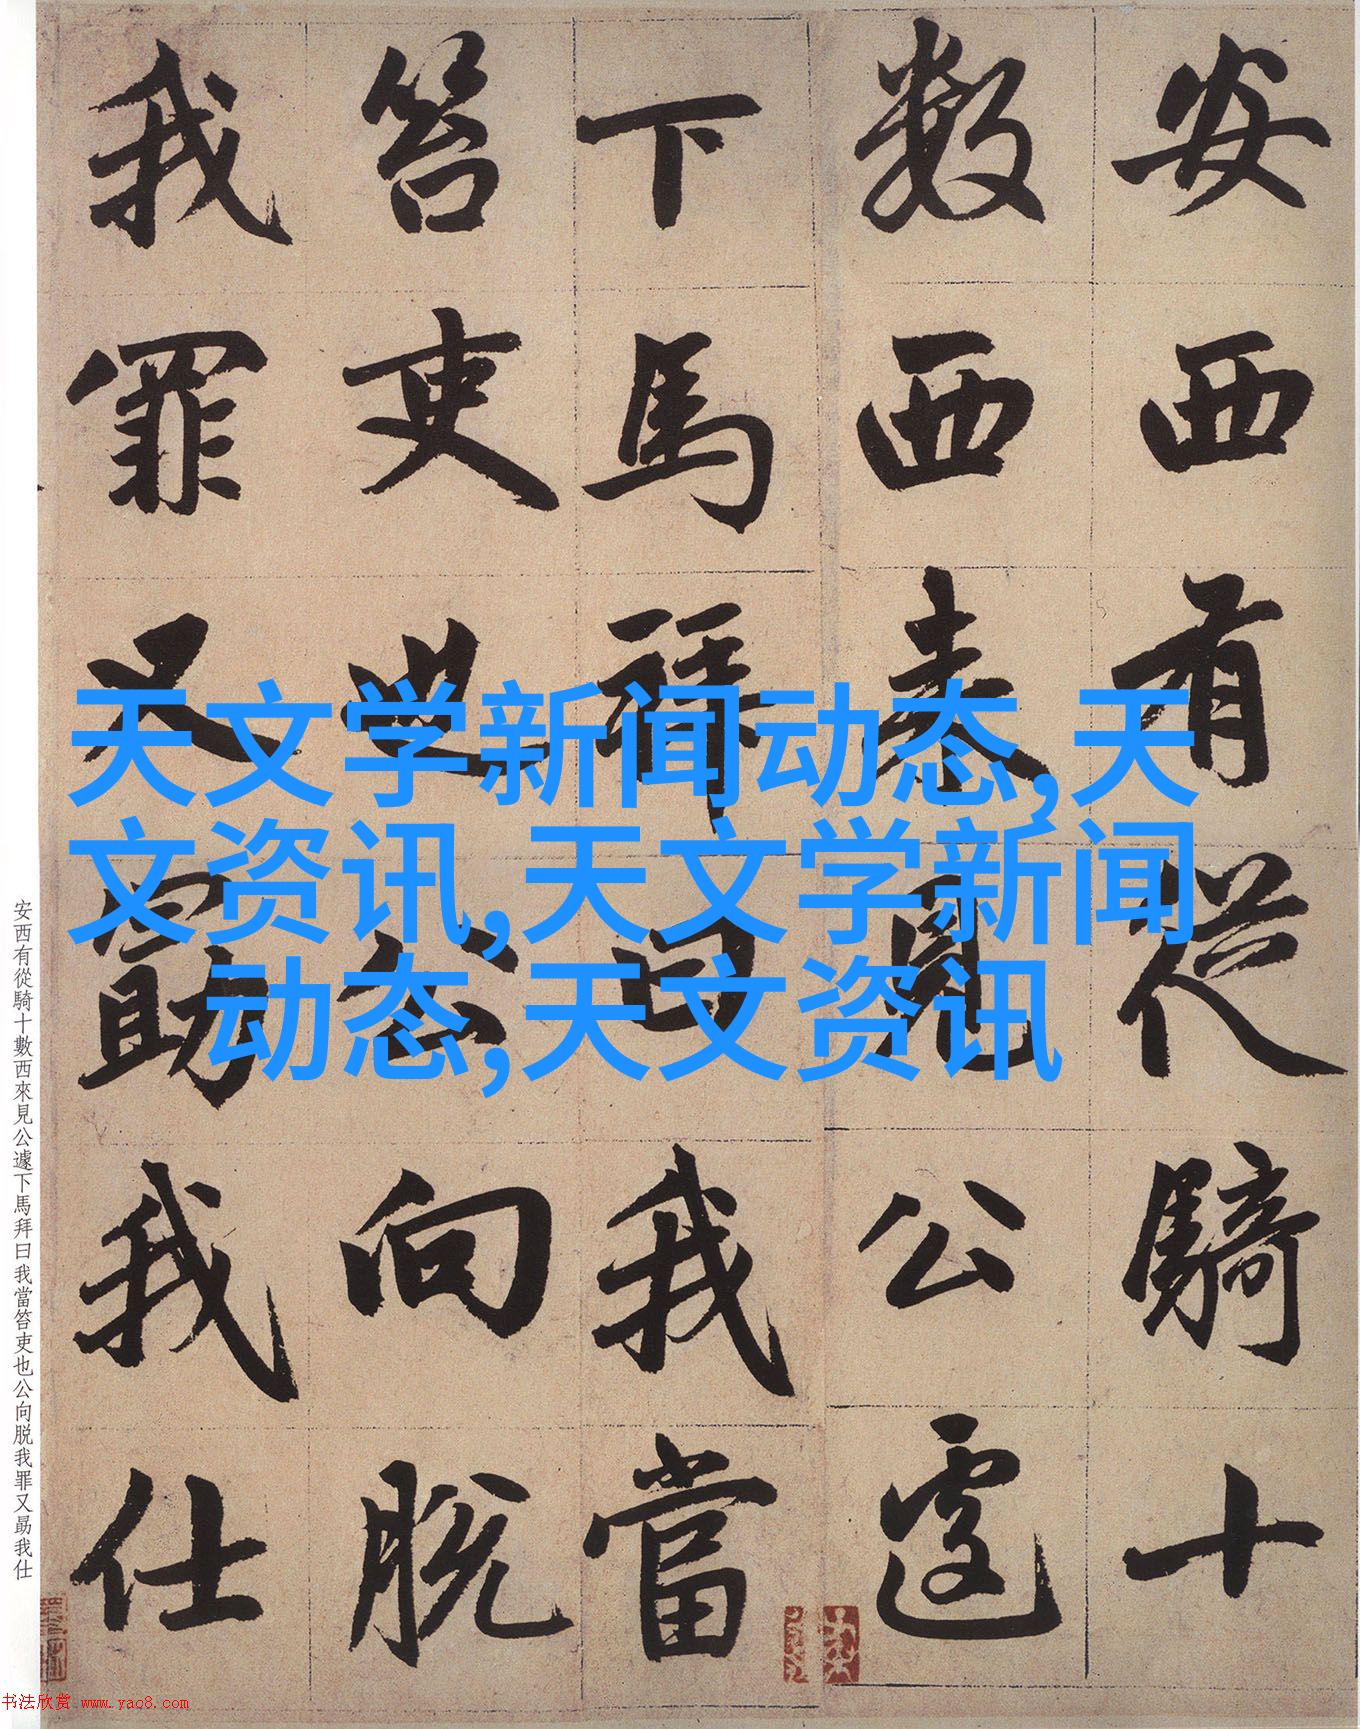 安西有從騎十
數西來見公遽
下馬拜曰我當
笞吏也公向脫
我罪又勗我仕
天文学新闻动态,天
文资讯,天文学新闻
动态,天文资讯
安西有從騎十數西來見公遽下馬拜曰我當笞吏也公向脱我罪又勗我仕
书法欣赏 www.yac8.com